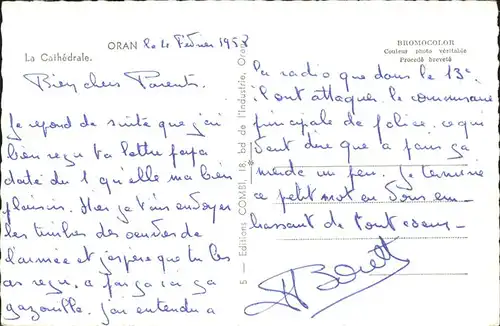 ORAN le 4 Février 1958
La Cathédrale.
Bien chers Parents.
Je repond de suite que j'ai
bien reçu ta lettre papa
daté du 1 qu'elle ma bien
plaisir. Hier je t'ai envoyer
les timbres des oeuvres de
l'armée et j'espère que tu les
as reçu, a part ça ça
gazouille. J'ai entendu a
5 — Editions COMBI, 18, bd de l'Industrie, Oran
BROMOCOLOR
Couleur photo véritable
Procédé breveté
la radio que dans le 13e
il ont attaquer le commissaire
principale de police, ce qui
veut dire que a Paris ça
merde un peu. Je termine
ce petit mot en vous em-
brassant de tout coeur.